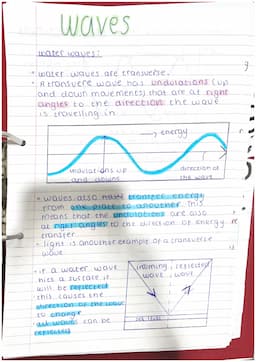 waves
water waves:
• water waves are transverse.
• A transvere wave has undulations (up
and down movements) that are at right
angles to the direction the wave
is travelling in
→ energy
undulations up
and downs
direction of
the wave
• waves also have transfer energy
from one place to another this
means that the undulations are also
at right angles to the direction of energy
transfer
• light is another example of a transverse
wave
• if a water wave
hits a surface it
will be reflected
this causes the
direction of the wave
to change
all waves can be
reflected
incoming
wave
reflected
wave